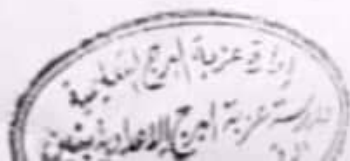 إدارة عزبة البرج التعليمية
مدرسة عزبة البرج الإعدادية بنين